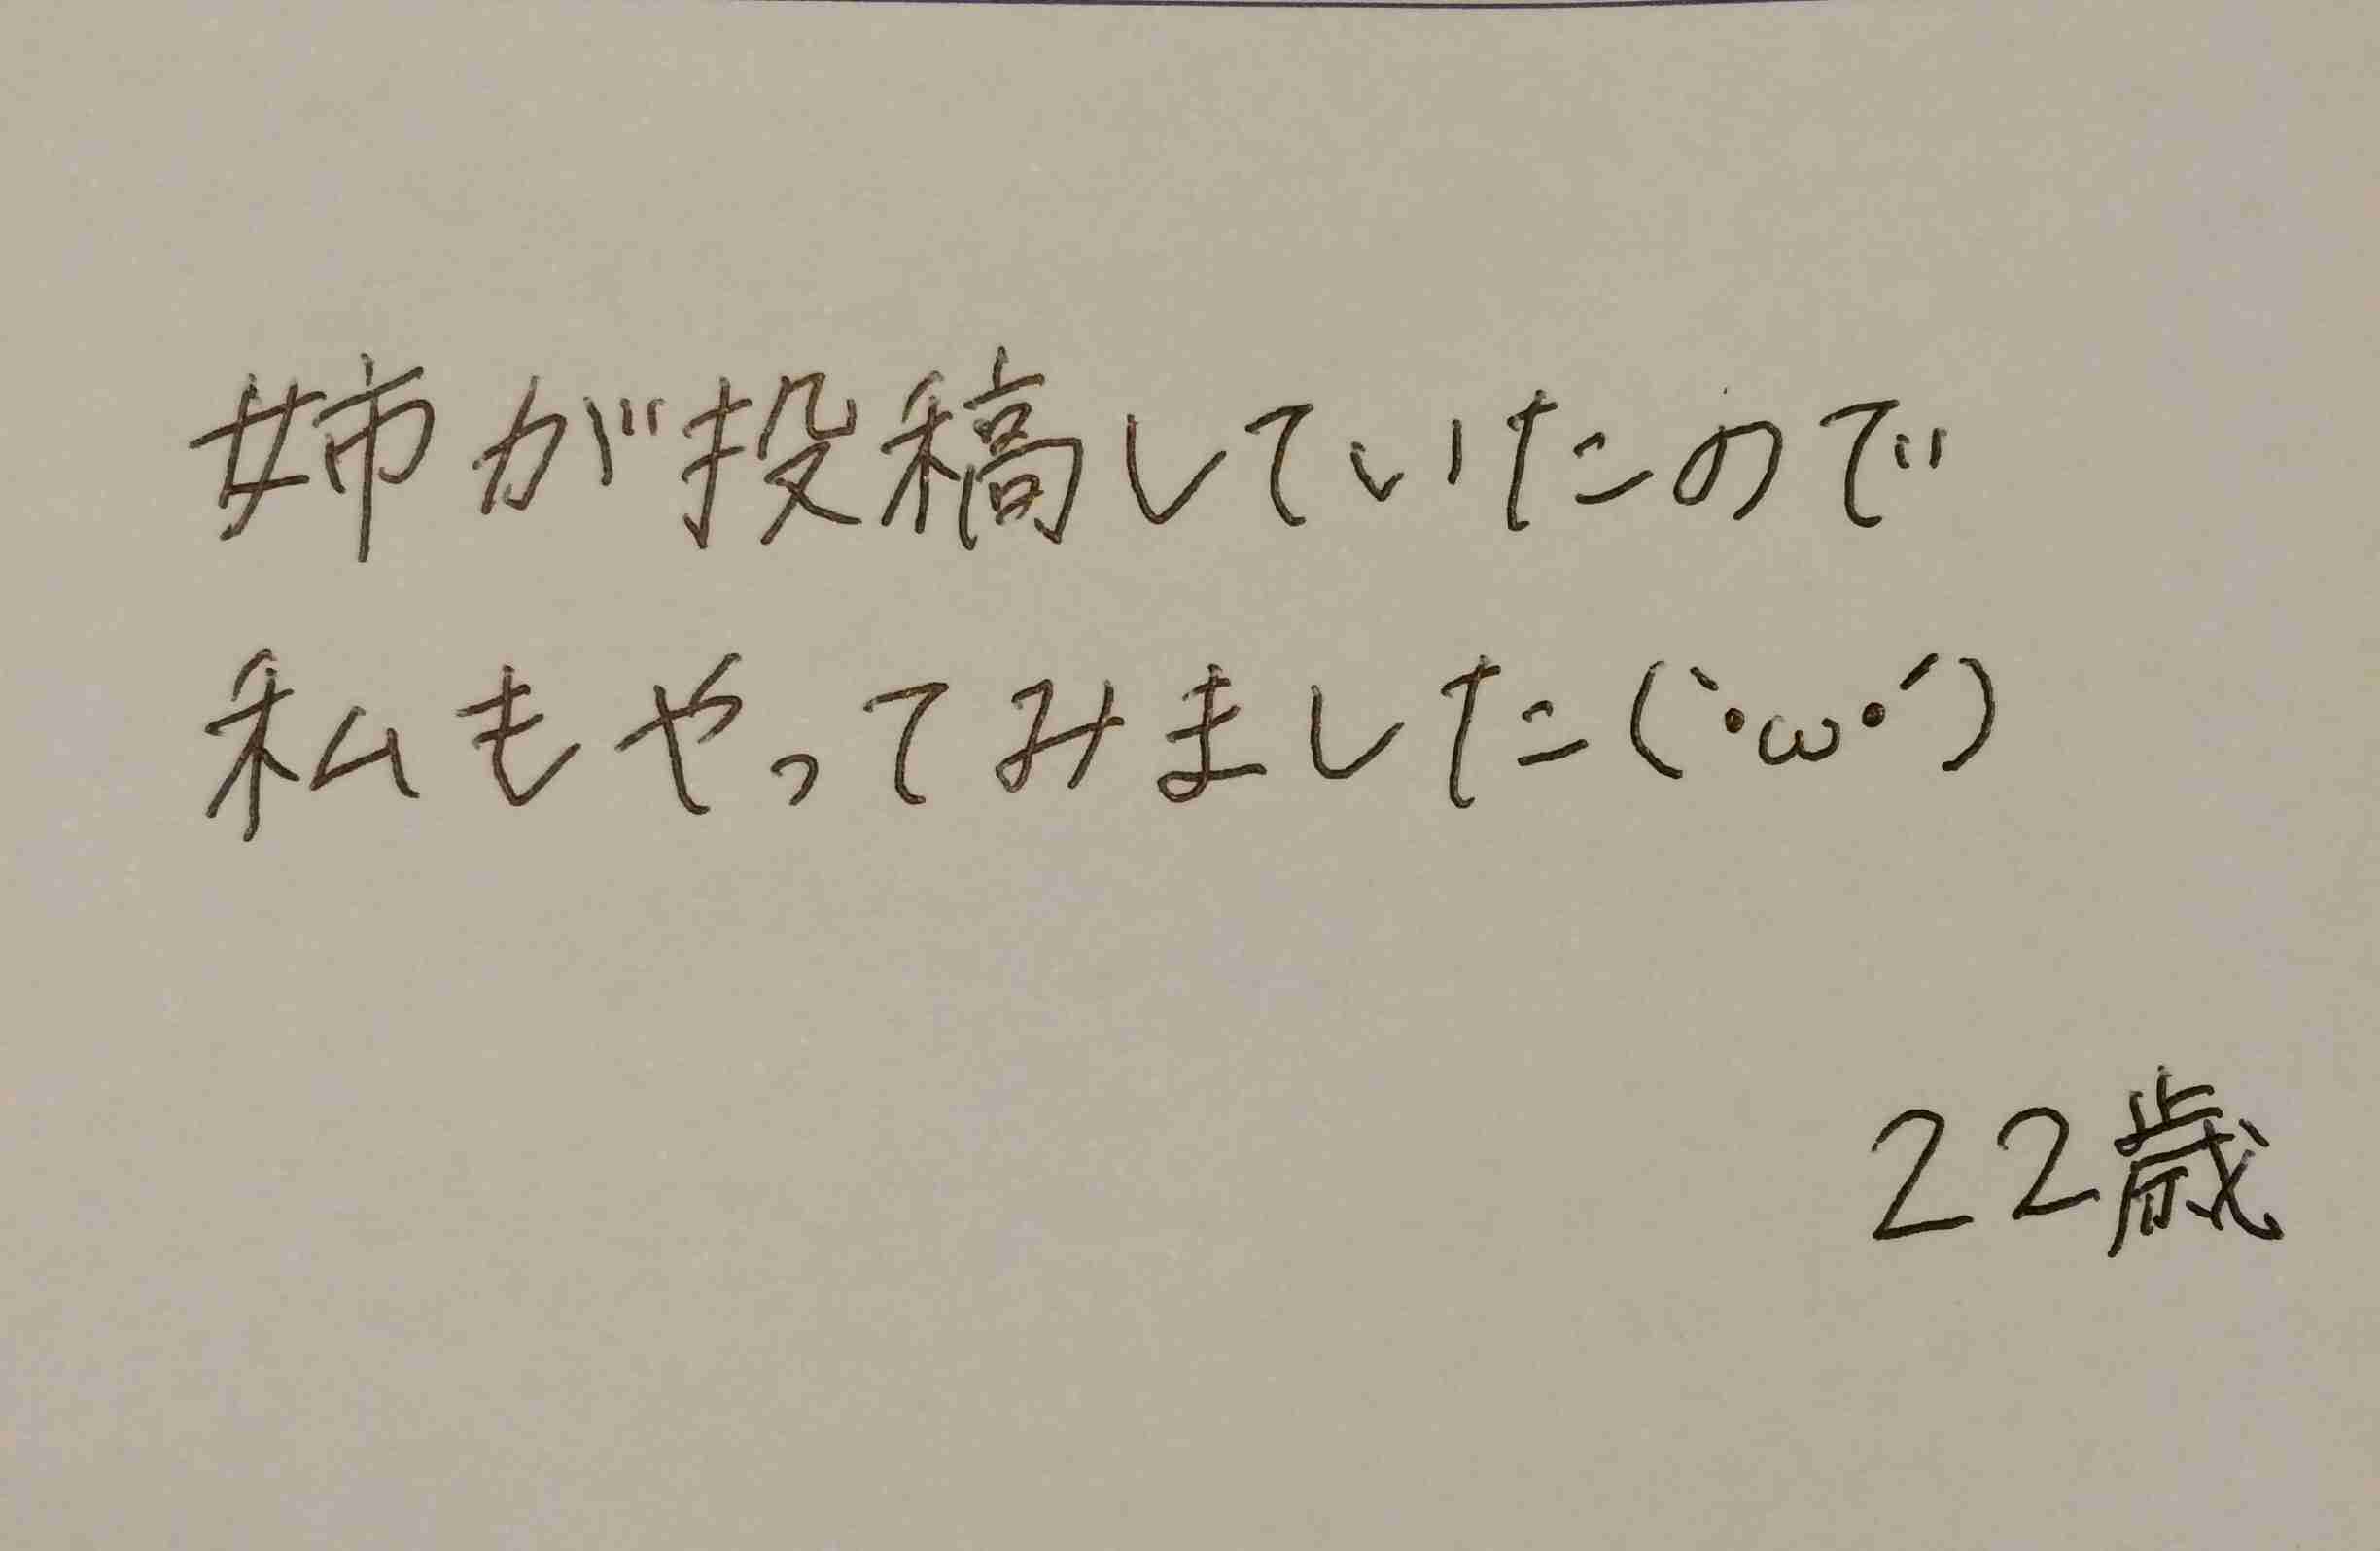 姉が投稿していたので
私もやってみました(`•ω•´)
22歳